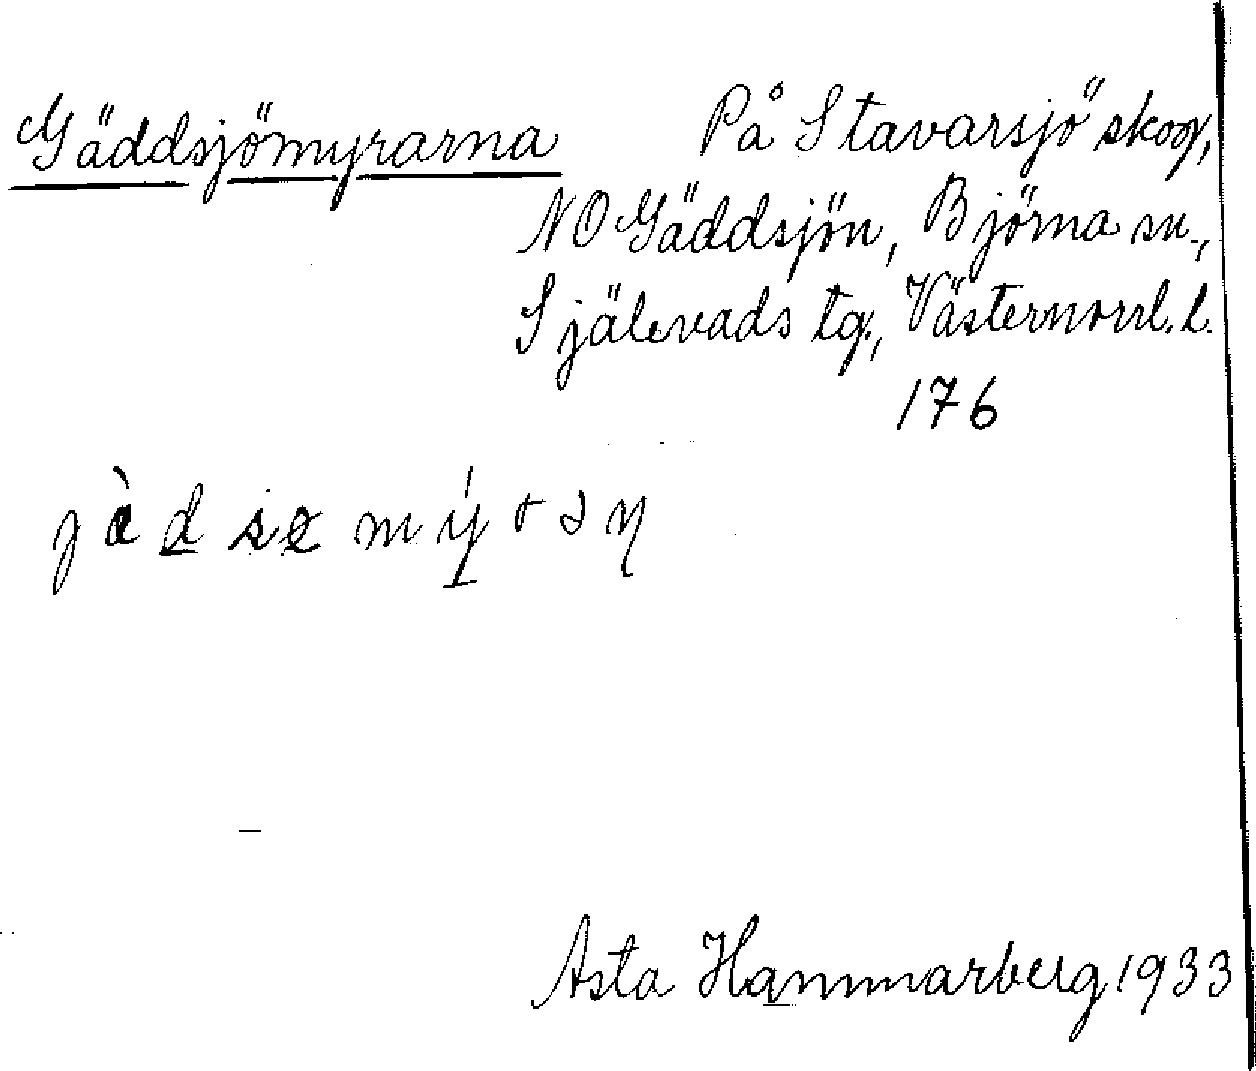 Gäddsjömyrarna På Stavarsjö skog,
NO Gäddsjön, Björna sn.,
Själevads tg., Västernorrl. l.
176
Asta Hammarberg 1933